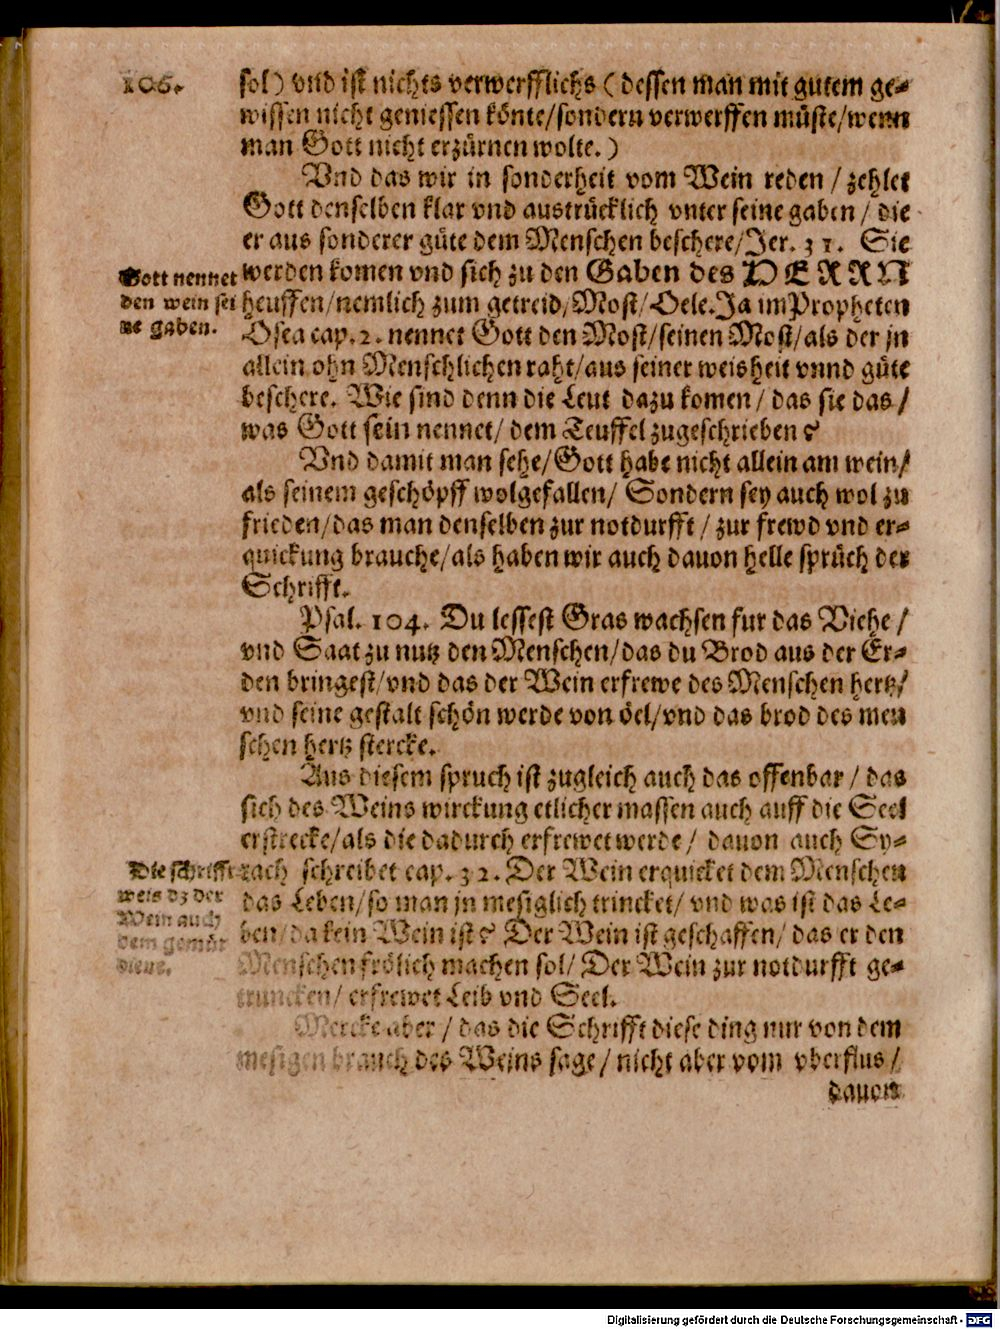 106.
sol) vnd ist nichts verwerfflichs (dessen man mit gutem ge-
wissen nicht geniessen könte/sondern verwerffen müste/wenn
man Gott nicht erzürnen wolte.)
Vnd das wir in sonderheit vom Wein reden / zehlet
Gott denselben klar vnd austrücklich vnter seine gaben / die
er aus sonderer güte dem Menschen beschere/Jer. 31. Sie
werden komen vnd sich zu den Gaben des HERRN
heuffen/nemlich zum getreid/Most/Oele.Ja im Propheten
Osea cap. 2. nennet Gott den Most/seinen Most/als der jn
allein ohn Menschlichen raht/aus seiner weisheit vnnd güte
beschere. Wie sind denn die Leut dazu komen / das sie das /
was Gott sein nennet/ dem Teuffel zugeschrieben?
Gott nennet
den wein sei
ne gaben.
Vnd damit man sehe/Gott habe nicht allein am wein/
als seinem geschöpff wolgefallen/ Sondern sey auch wol zu
frieden/das man denselben zur notdurfft / zur frewd vnd er-
quickung brauche/als haben wir auch dauon helle sprüch der
Schrifft.
Psal. 104. Du lessest Gras wachsen fur das Viehe /
vnd Saat zu nutz den Menschen/das du Brod aus der Er-
den bringest/vnd das der Wein erfrewe des Menschen hertz/
vnd seine gestalt schön werde von öel/vnd das brod des men
schen hertz stercke.
Aus diesem spruch ist zugleich auch das offenbar / das
sich des Weins wirckung etlicher massen auch auff die Seel
erstrecke/als die dadurch erfrewet werde / dauon auch Sy-
rach schreibet cap. 32. Der Wein erquicket dem Menschen
das Leben/so man jn mesiglich trincket/ vnd was ist das Le-
ben/da kein Wein ist? Der Wein ist geschaffen/ das er den
Menschen frölich machen sol/ Der Wein zur notdurfft ge-
truncken/ erfrewet Leib vnd Seel.
Die schrifft
weis dz der
Wein auch
dem gemüt
diene.
Mercke aber / das die Schrifft diese ding nur von dem
mesigen brauch des Weins sage / nicht aber vom vberflus /
dauon
Digitalisierung gefördert durch die Deutsche Forschungsgemeinschaft - DFG